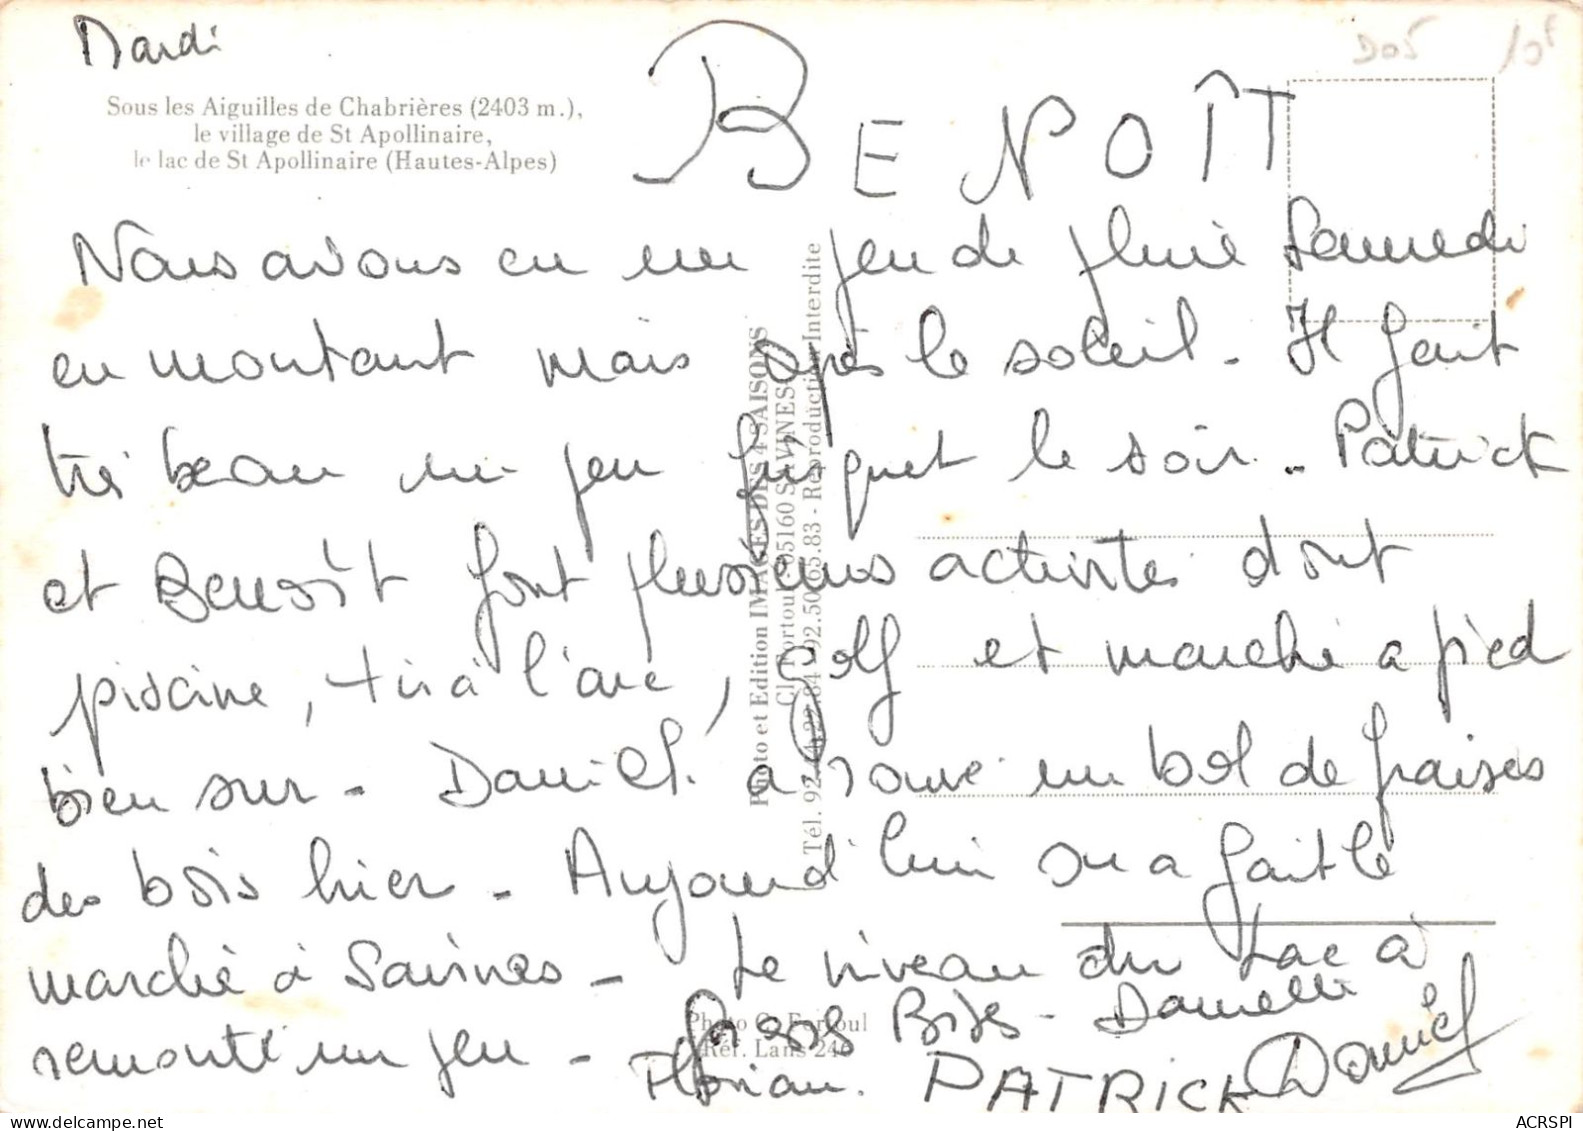 Mardi
D05 10F
Sous les Aiguilles de Chabrières (2403 m.),
le village de St Apollinaire,
le lac de St Apollinaire (Hautes-Alpes)
BENOÎT
Nous avons eu un peu de pluie Samedi
en montant mais après le soleil. Il fait
très beau un peu frisquet le soir. Patrick
et Benoît font plusieurs activités dont
piscine, tir à l'arc, golf et marche a pied
bien sur. Daniel a trouvé un bol de fraises
des bois hier. Aujourd'hui on a fait le
marché à Savines. Le niveau du Lac à
remonté un peu. Gros Bises. Danielle
Florian. PATRICK Daniel
Photo et Edition IMAGES DES 4 SAISONS
Cl. Fortoul - 05160 SAVINES
Tél. 92.44.22.84 - 92.50.65.83 - Reproduction Interdite
Photo C. Fortoul
Réf. Lans 246
ACRSPI